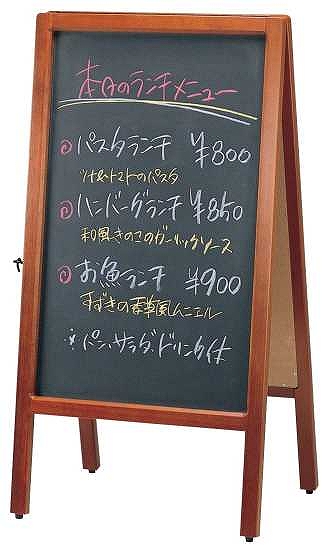 本日のランチメニュー
◎パスタランチ ¥800
ツナ&トマトのパスタ
◎ハンバーグランチ ¥850
和風きのこのガーリックソース
◎お魚ランチ ¥900
すずきの香草風ムニエル
※パン、サラダ、ドリンク付